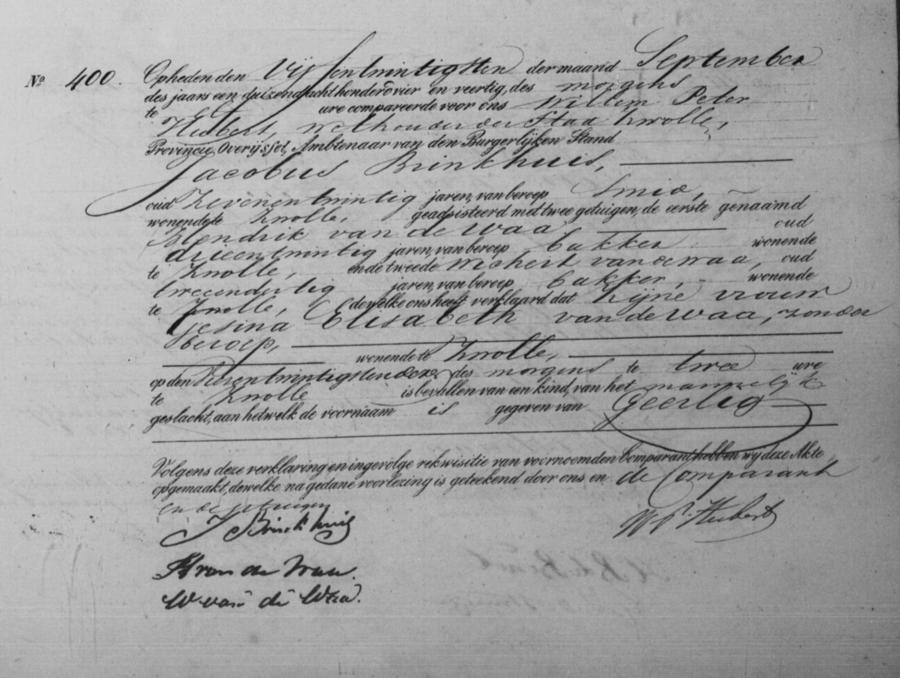 No 400. Opheden den Vijf en twintigsten der maand September
des jaars een duizend acht honderd vier en veertig, des morgens
te elf ure compareerde voor ons Willem Peter
Hubert, Wethouder der Stad Zwolle,
Provincie Overijssel, Ambtenaar van den Burgerlijken Stand
Jacobus Brinkhuis,
oud Zevenentwintig jaren, van beroep Smid,
wonende te Zwolle, geadsisteerd met twee getuigen, de eerste genaamd
Hendrik van de Waa, oud
drieentwintig jaren, van beroep bakker wonende
te Zwolle, en de tweede Wichert van de Waa, oud
tweeendertig jaren, van beroep bakker, wonende
te Zwolle, dewelke ons heeft verklaard dat zijne vrouw
Gesina Elisabeth van de Waa, zonder
beroep,
wonende te Zwolle,
op den dezer des morgens te twee ure
te Zwolle is bevallen van een kind, van het mannelijk
geslacht, aan hetwelk de voornaam is gegeven van Geerlig
Volgens deze verklaring en ingevolge rekwisitie van voornoemden Comparant hebben wij deze Akte
opgemaakt, dewelke na gedane voorlezing is geteekend door ons en de Comparant
en de getuigen
J Brinkhuis W. P. Hubert
H van de Waa.
W van de Waa.